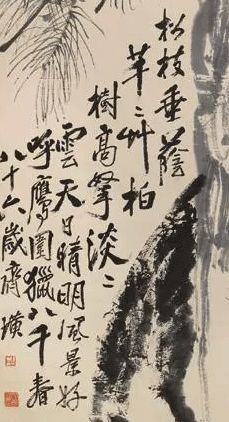 松枝垂蔭
芊〻艸柏
樹高擎淡〻
雲天日晴明風景好
呼鷹圍獵八千春
八十六歲齊璜